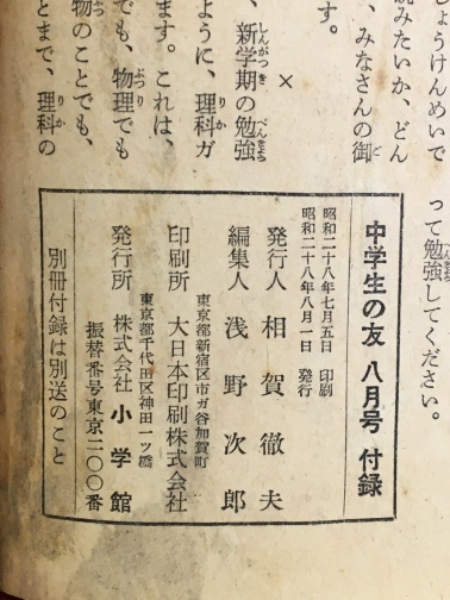 しょうけんめいで
読みたいか、どん
、みなさんの御
す。
×
、新学期の勉強
ように、理科ガ
ます。これは、
でも、物理でも
物のことでも、
とまで、理科の
って勉強してください。
中学生の友 八月号 付録
昭和二十八年七月五日 印刷
昭和二十八年八月一日 発行
発行人 相賀徹夫
編集人 浅野次郎
東京都新宿区市ガ谷加賀町
印刷所 大日本印刷株式会社
東京都千代田区神田一ツ橋
発行所 株式会社 小学館
振替番号東京二〇〇番
別冊付録は別送のこと